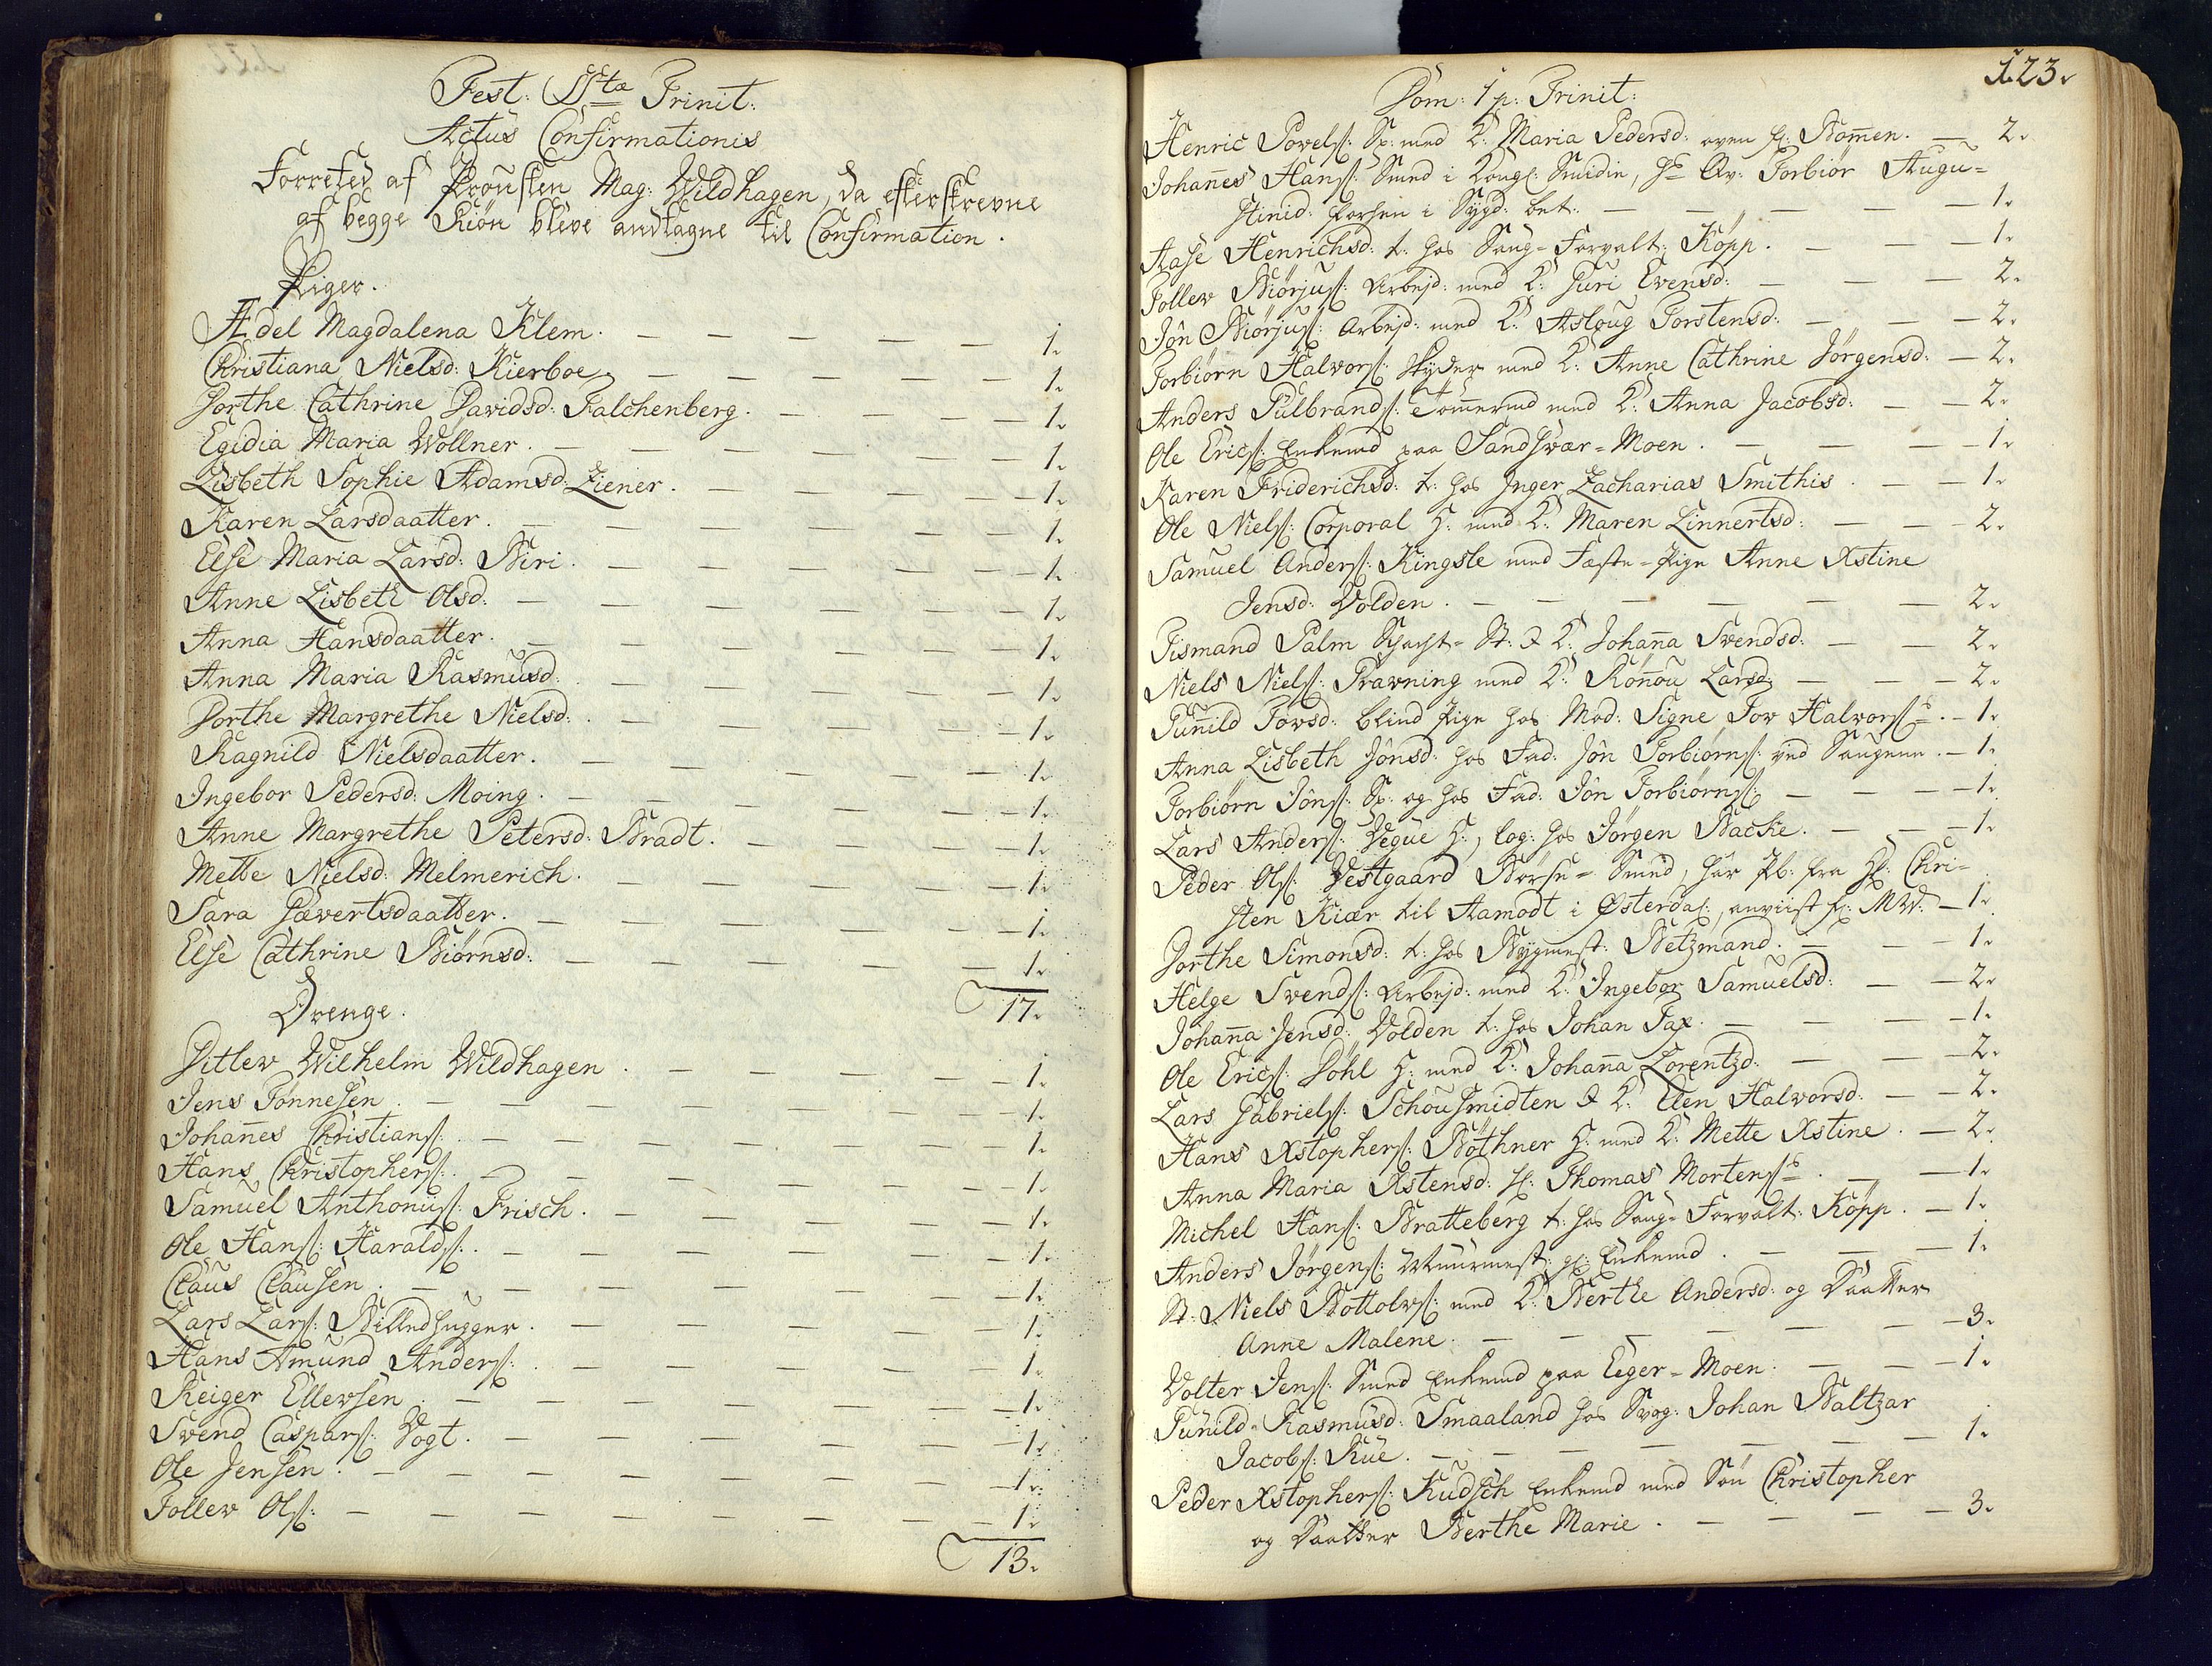 Fest: SStæ Trinit:
Actus Confirmationis
Forretted af Provsten Mag: Wildhagen, da efterskrevne
af begge Kiøn bleve andtagne til Confirmation.
Piger.
Adel Magdalena Klem. — 1.
Christiana Nielsd: Kierboe. — 1.
Dorthe Cathrine Davidsd: Falchenberg. — 1.
Egidia Maria Wöllner. — 1.
Lisbeth Sophie Adamsd: Ziener. — 1.
Karen Larsdaatter. — 1.
Else Maria Larsd: Biri. — 1.
Anne Lisbeth Olsd: — 1.
Anna Hansdaatter. — 1.
Anna Maria Rasmusd: — 1.
Dorthe Margrethe Nielsd: — 1.
Ragnild Nielsdaatter. — 1.
Ingebor Pedersd: Moing. — 1.
Anne Margrethe Petersd: Bradt. — 1.
Mette Nielsd: Melmerich. — 1.
Sara Gævertsdaatter. — 1.
Else Cathrine Biørnsd: — 1.
17.
Drenge.
Ditlev Wilhelm Wildhagen. — 1.
Jens Tønnesen. — 1.
Johannes Christians: — 1.
Hans Christophers: — 1.
Samuel Anthoniis: Frisch. — 1.
Ole Hans: Haralds: — 1.
Claus Clausen. — 1.
Lars Lars: Billedhugger. — 1.
Hans Amund Anders: — 1.
Reiger Ellevsen. — 1.
Svend Caspars: Vogt. — 1.
Ole Jensen. — 1.
Tollev Ols: — 1.
13.
123.
Dom: 1 p: Trinit:
Henric Povels: Sp: med K: Maria Pedersd: oven f: Dammen. — 2.
Johannes Hans: Smed i Kongs: Smidie, Hs Qv: Torbiør Augu-
stinid: — 1.
Aase Henrichsd: t: hos Saug-Forvalt: Köpp. — 1.
Tollev Biørjus: Arbejd: med K: Guri Evensd: — 2.
Jón Biørjus: Arbejd: med K: Asloug Torstensd: — 2.
Torbiørn Halvors: Skyder med K: Anne Cathrine Jörgensd: — 2.
Anders Gulbrands: Tömmermd med K: Anna Jacobsd: — 2.
Ole Erics: Enkemd paa Sandsvær-Moen. — 1.
Karen Friderichsd: t: hos Inger Zacharias Smithis. — 1.
Ole Niels: Corporal H: med K: Maren Linnertsd: — 2.
Samuel Anders: Kingsle med Fæste-Pige Anne Xstine
Jensd: Volden. — 2.
Tismand Palm Schacht-St: & K: Johanna Svendsd: — 2.
Niels Niels: Gravning med K: Rönnou Larsd: — 2.
Gunild Tovsd: blind Pige hos Mod: Signe Tov Halvorss. — 1.
Anna Lisbeth Jónsd: hos Fad: Jón Torbiørns: ved Saugene. — 1.
Torbiørn Jóns: Sp: og hos Fad: Jón Torbiørns: — 1.
Lars Anders: Degue H:, log: hos Jörgen Backe. — 1.
Peder Ols: Vestgaard Börse-Smed, har Pb: fra Hr: Chri-
sten Kiær til Aamodt i Østerda:, anviist f: MW: — 1.
Dorthe Simonsd: t: hos Bygmest: Betzmand. — 1.
Helge Svends: Arbejd: med K: Ingebor Samuelsd: — 2.
Johanna Jensd: Volden t: hos Johan Fax. — 1.
Ole Erics: Döhl H: med K: Johanna Lorentzd: — 2.
Lars Gabriels: Schousmidten & K: Elen Halvorsd: — 2.
Hans Xstophers: Böthner H: med K: Mette Xstine. — 2.
Anna Maria Xstensd: Sl: Thomas Mortenss. — 1.
Michel Hans: Bratteberg t: hos Saug-Forvalt: Köpp. — 1.
Anders Jörgens: Muurmest: Enkemd. — 1.
St: Niels Bottolvs: med K: Berthe Andersd: og Daatter
Anne Malene. — 3.
Volter Jens: Smed Enkemd paa Eger-Moen. — 1.
Gunild Rasmusd: Smaaland hos Svog: Johan Baltzar
Jacobs: Rue. — 1.
Peder Xstophers: Kudsch Enkemd med Søn Christopher
og Daatter Berthe Marie. — 3.